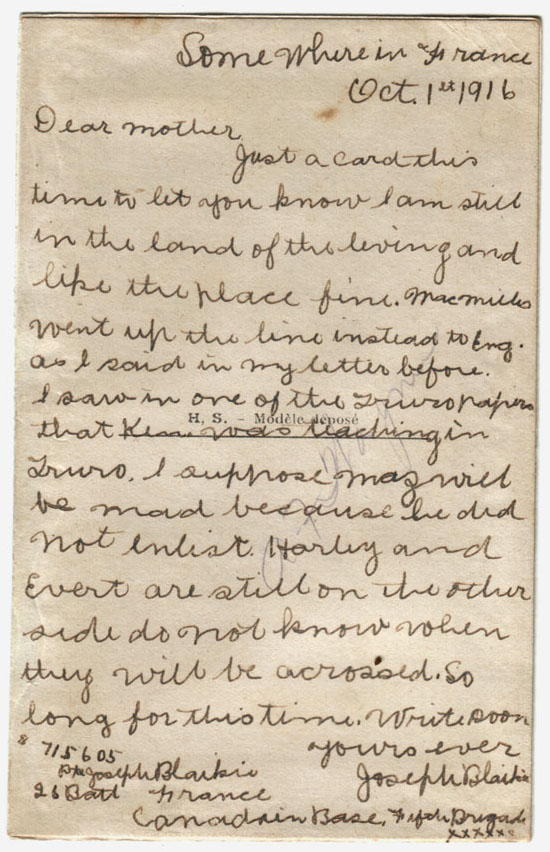 Somewhere in France
Oct. 1st 1916
Dear mother
Just a card this
time to let you know I am still
in the land of the leving and
like the place fine. Macmilles
went up the line instead to Eng.
as I said in my letter before.
I saw in one of the Truro papers
H. S. - Modèle déposé
that Ken was teaching in
Truro. I suppose may will
be mad because he did
not enlist. Harley and
Evert are still on the other
side do not know when
they will be acrossed. So
long for this time. Write soon
yours ever
Joseph Blaikie
715605
Pte Joseph Blaikie
26 Batt France
Canadain Base, Fifth Brigade
xxxxxx